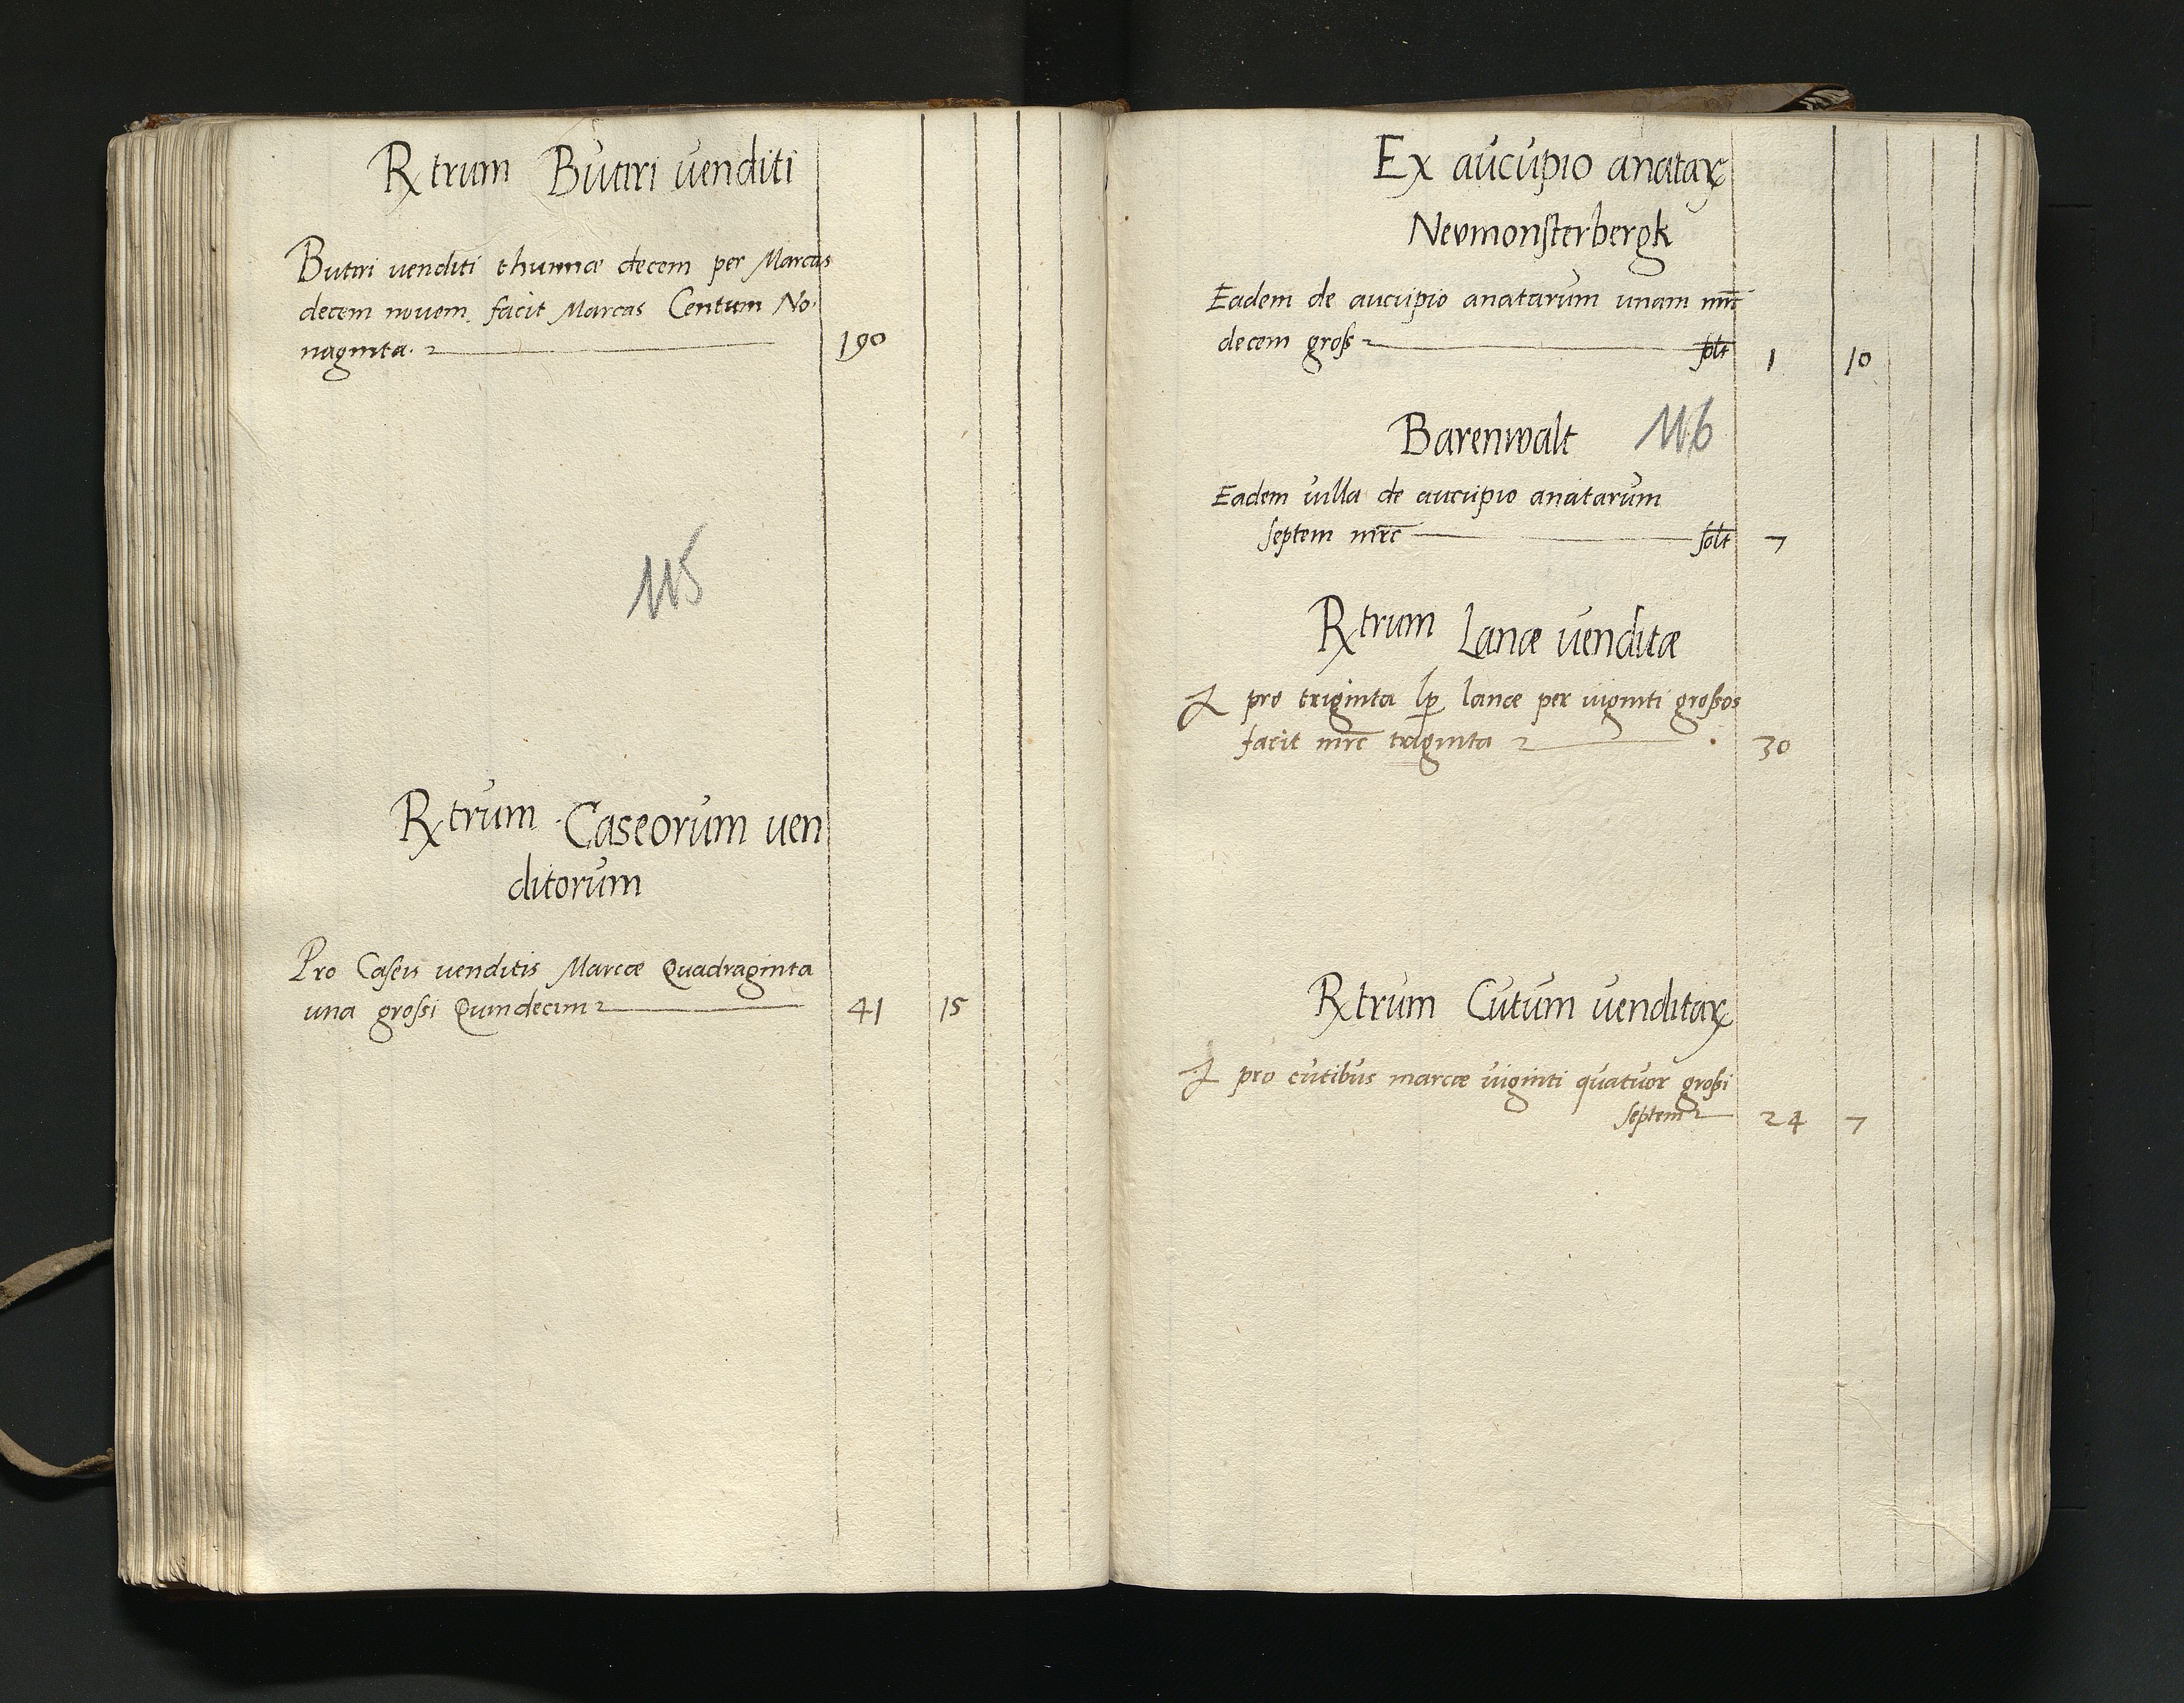 Rtrum Butiri venditi
Butiri venditi thunnæ decem per Marcas
decem novem facit Marcas Centum No
naginta. 190
115
Rtrum Caseorum ven
ditorum
Pro Caseis venditis Marcæ Quadraginta
una grossi Quindecim 41 15
Ex aucupio anataꝝ
Nevmonsterbergk
Eadem de aucupio anatarum unam mrc
decem gross solt 1 10
Barenwalt 116
Eadem villa de aucupio anatarum
septem mrc solt 7
Rtrum Lanæ venditæ
pro triginta lp lanæ per viginti grossos
facit mrc triginta 30
Rtrum Cutum venditaꝝ
pro cutibus marcæ viginti quatuor grossi
septem 24 7